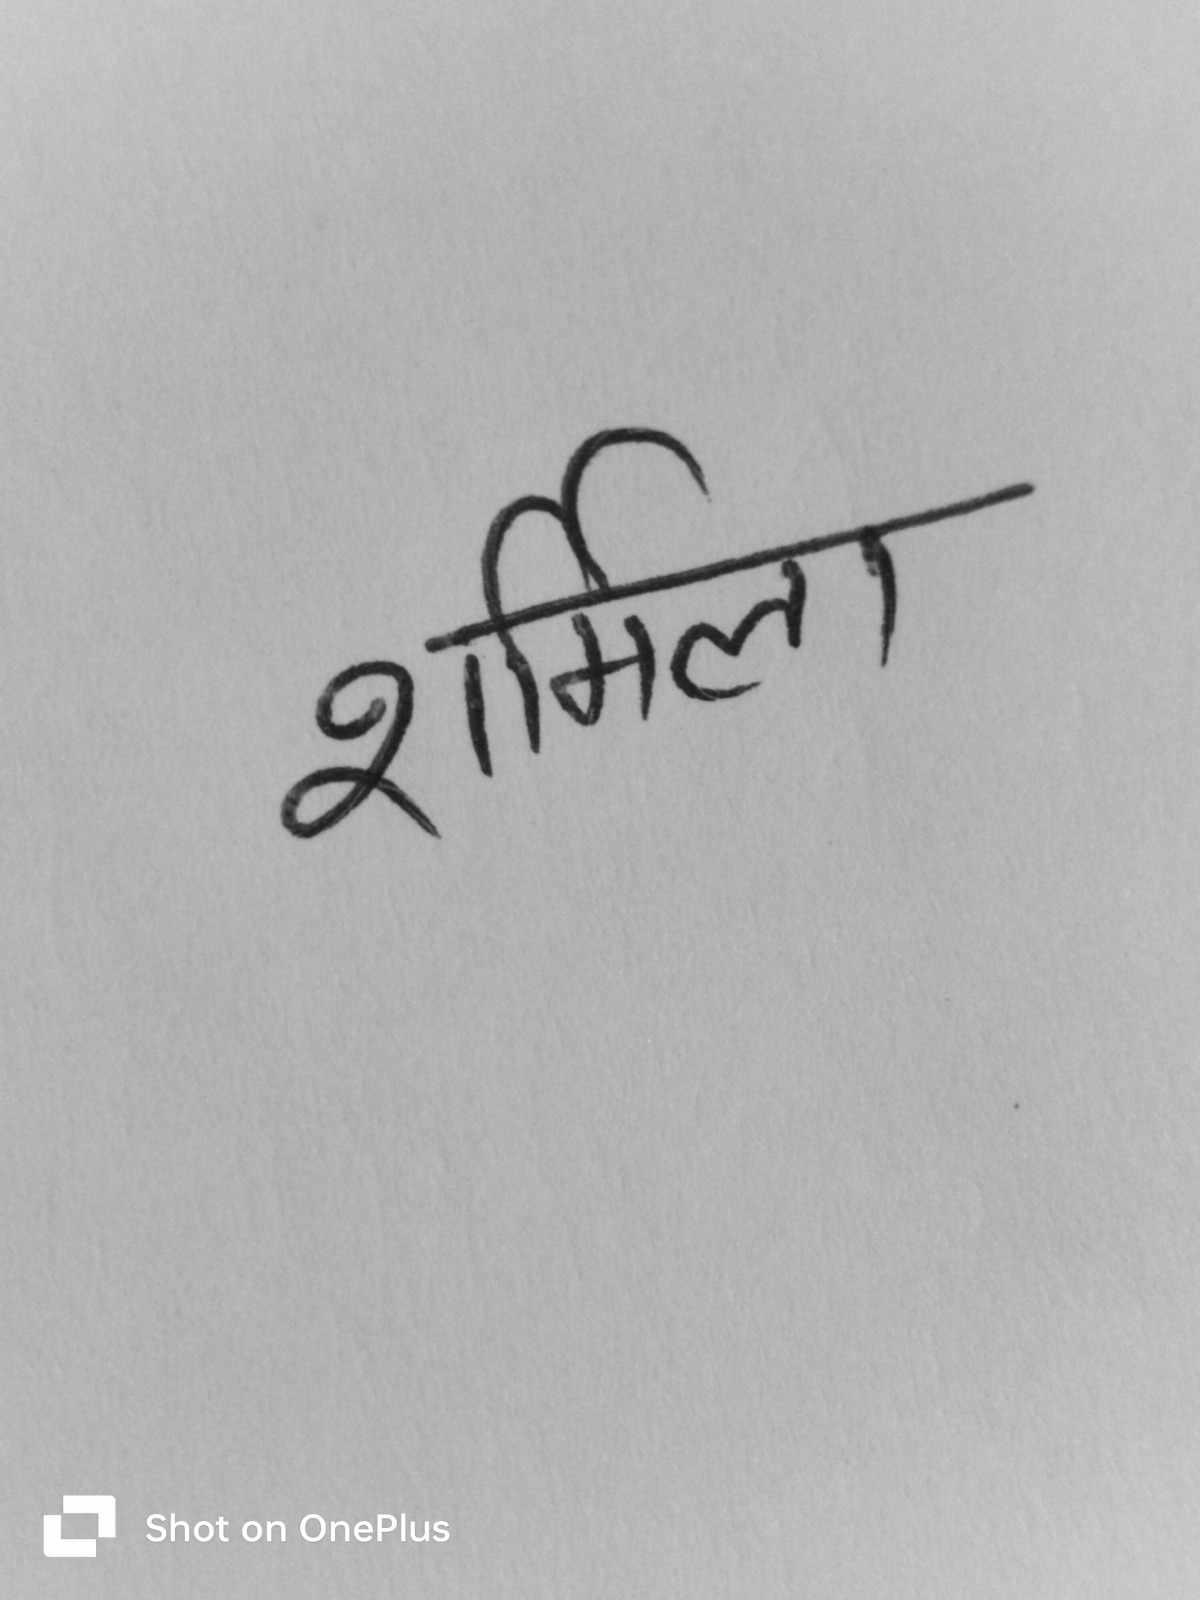 शर्मिला
Shot on OnePlus